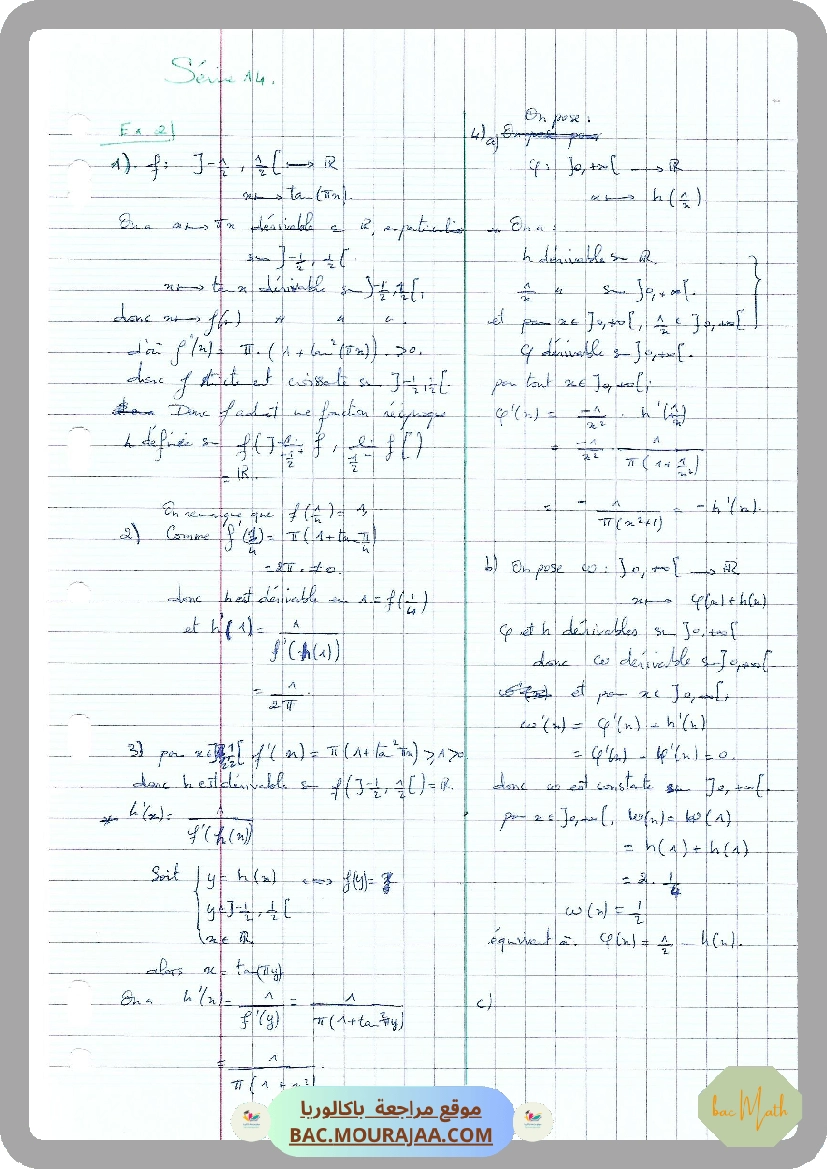 Série 14.
Ex 2)
1) f: ]-1/2, 1/2[ → ℝ
x ↦ tan(πx).
On a x ↦ πx dérivable sur ℝ, en particulier
sur ]-1/2, 1/2[
x ↦ tan x dérivable sur ]-1/2, 1/2[,
donc x ↦ f(x) " " "
d'où f'(x) = π.(1+tan²(πx)) > 0.
donc f strictement croissante sur ]-1/2, 1/2[.
Donc f admet une fonction réciproque
h définie sur f(]-1/2, 1/2[)
= ℝ.
On remarque que f(1/4) = 1,
2) Comme f'(1/4) = π(1+tan² π/4)
= 2π ≠ 0.
donc h est dérivable en 1 = f(1/4)
et h'(1) = 1/f'(h(1))
= 1/2π.
3) pour x ∈ ]-1/2, 1/2[ f'(x) = π(1+tan² πx) ⩾ 1 > 0
donc h est dérivable sur f(]-1/2, 1/2[) = ℝ.
h'(x) = 1/f'(h(x))
Soit { y = h(x) ⟺ f(y) =
y ∈ ]-1/2, 1/2[
x ∈ ℝ
alors x = tan(πy)
On a h'(x) = 1/f'(y) = 1/π(1+tan² πy)
= 1/π(1+x²)
On pose :
4) a)
φ: ]0, +∞[ → ℝ
x ↦ h(1/x)
On a :
h dérivable sur ℝ.
1/x " sur ]0, +∞[.
et pour x ∈ ]0, +∞[, 1/x ∈ ]0, +∞[
φ dérivable sur ]0, +∞[.
pour tout x ∈ ]0, +∞[;
φ'(x) = -1/x² . h'(1/x)
= -1/x² . 1/π(1+1/x²)
= - 1/π(x²+1) = - h'(x).
b) On pose ω: ]0, +∞[ → ℝ
x ↦ φ(x) + h(x)
φ et h dérivables sur ]0, +∞[
donc ω dérivable sur ]0, +∞[
et pour x ∈ ]0, +∞[,
ω'(x) = φ'(x) + h'(x)
= φ'(x) - φ'(x) = 0.
donc ω est constante sur ]0, +∞[.
pour x ∈ ]0, +∞[, ω(x) = ω(1)
= h(1) + h(1)
= 2 . 1/4
ω(x) = 1/2
équivaut à. φ(x) = 1/2 - h(x).
c)
موقع مراجعة باكالوريا
BAC.MOURAJAA.COM
bac Math